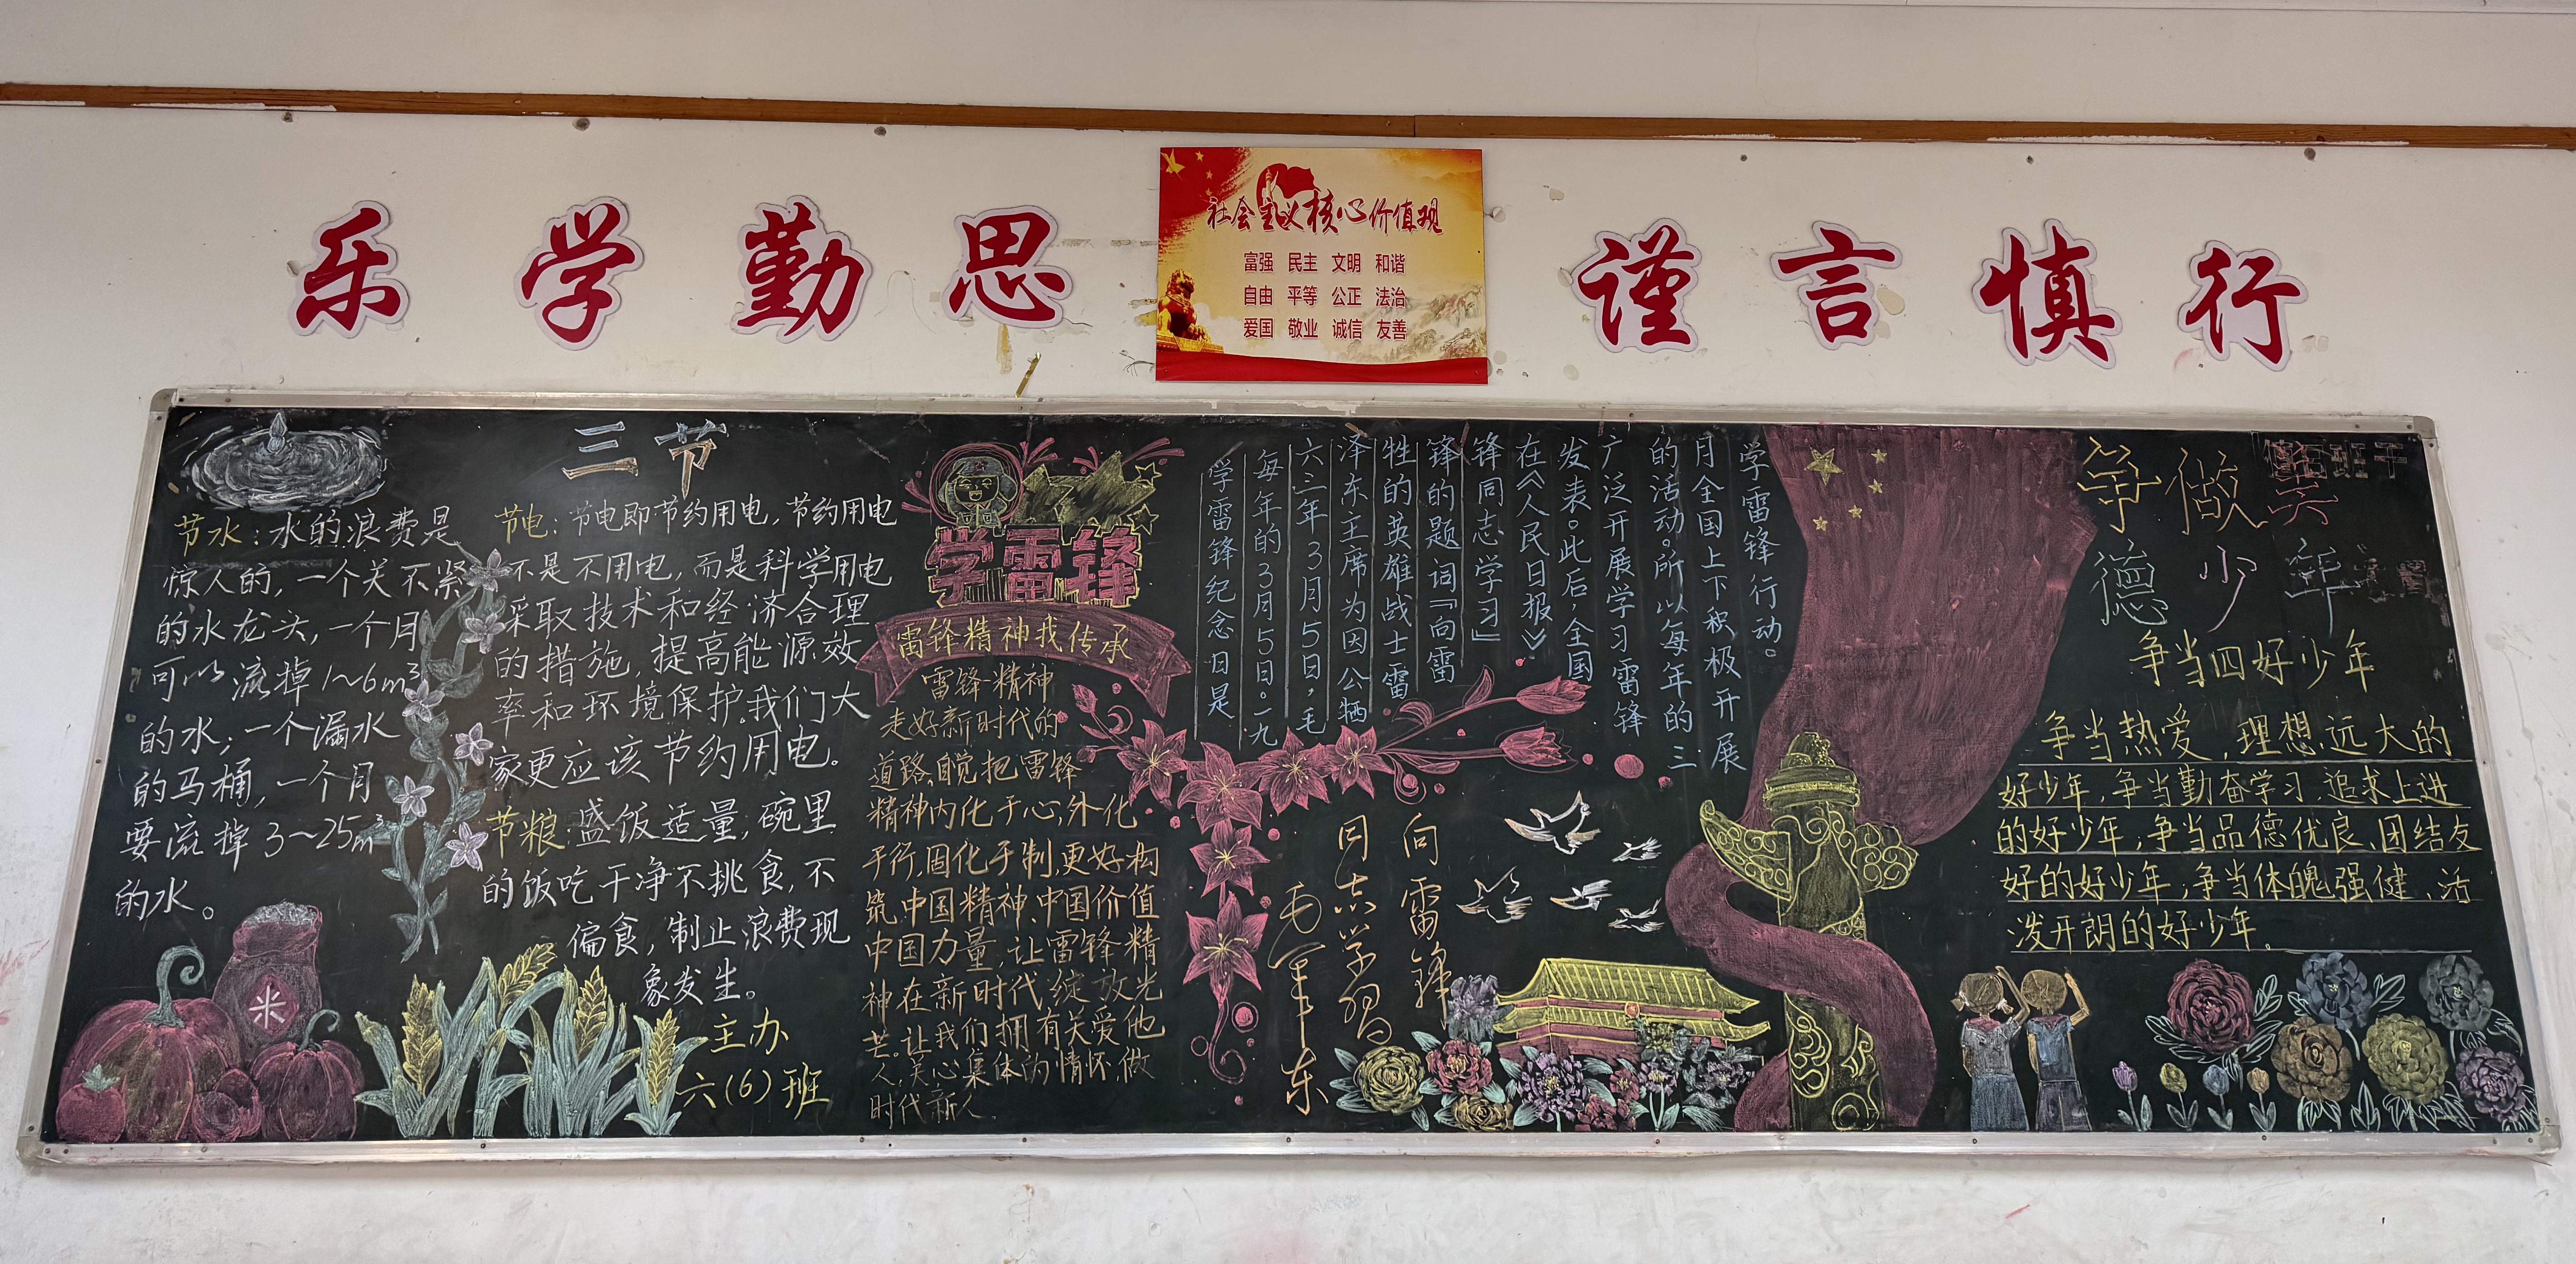 乐学勤思
社会主义核心价值观
富强 民主 文明 和谐
自由 平等 公正 法治
爱国 敬业 诚信 友善
谨言慎行
三节
节水：水的浪费是
惊人的，一个关不紧
的水龙头，一个月
可以流掉1~6m³
的水；一个漏水
的马桶，一个月
要流掉3~25m³
的水。
节电：节电即节约用电，节约用电
不是不用电，而是科学用电
采取技术和经济合理
的措施，提高能源效
率和环境保护。我们大
家更应该节约用电。
节粮：盛饭适量；碗里
的饭吃干净不挑食，不
偏食，制止浪费现
象发生。
主办
六(6)班
米
学雷锋
雷锋精神我传承
雷锋精神
走好新时代的
道路，自觉把雷锋
精神内化于心，外化
于行，固化于制，更好构
筑中国精神、中国价值
中国力量，让雷锋精
神在新时代绽放光
芒。让我们拥有关爱他
人，关心集体的情怀，做
时代新人。
学雷锋纪念日是
每年的3月5日。一九
六三年3月5日，毛
泽东主席为因公牺
牲的英雄战士雷
锋的题词『向雷
锋同志学习』
在《人民日报》
发表。此后，全国
广泛开展学习雷锋
的活动。所以每年的三
月全国上下积极开展
学雷锋行动。
向雷锋
同志学习
毛泽东
争做美
德少年
争当四好少年
争当热爱，理想远大的
好少年，争当勤奋学习、追求上进
的好少年；争当品德优良、团结友
好的好少年；争当体魄强健、活
泼开朗的好少年。